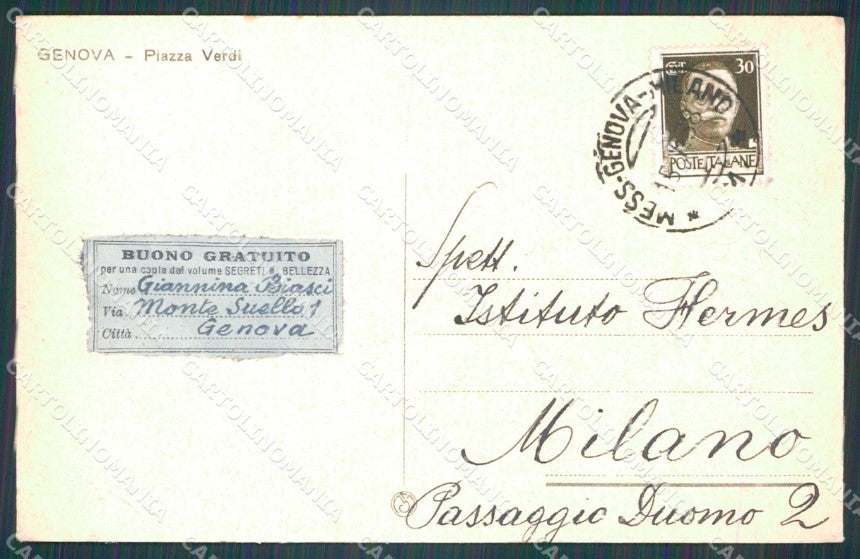 GENOVA - Piazza Verdi
CENT 30
POSTE ITALIANE
MESS-GENOVA-MILANO
BUONO GRATUITO
per una copia del volume SEGRETI di BELLEZZA
Nome Giannina Biasci
Via Monte Suello 1
Città Genova
Spett.
Istituto Hermes
Milano
Passaggio Duomo 2
CARTOLINOMANIA